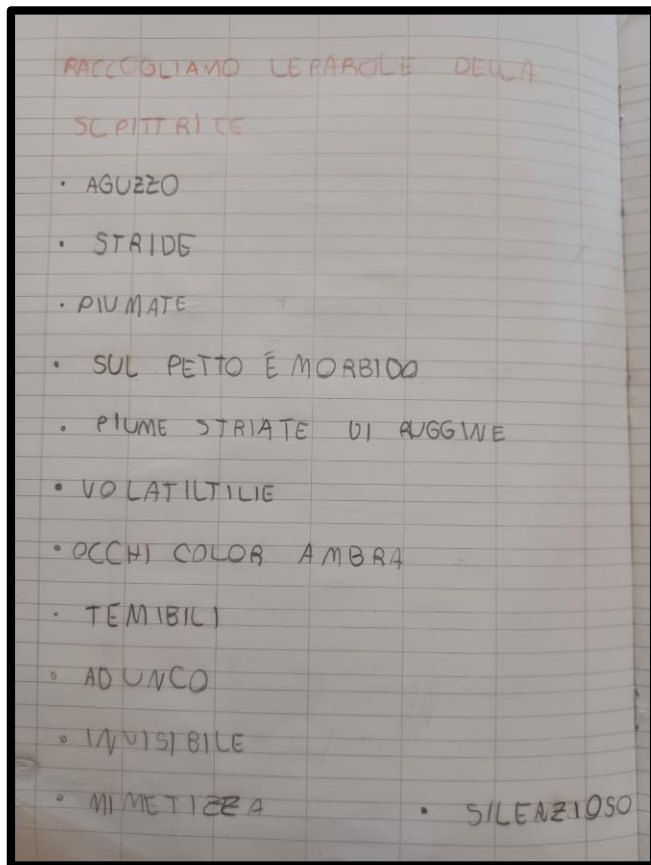 RACCOGLIAMO LEPAROLE DELLA
SCPITTRICE
• AGUZZO
• STRIDE
• PIUMATE
• SUL PETTO È MORBIDO
• PIUME STRIATE DI RUGGINE
• VOLATILTILIE
• OCCHI COLOR AMBRA
• TEMIBILI
• ADUNCO
• INVISIBILE
• MIMETIZZA • SILENZIOSO